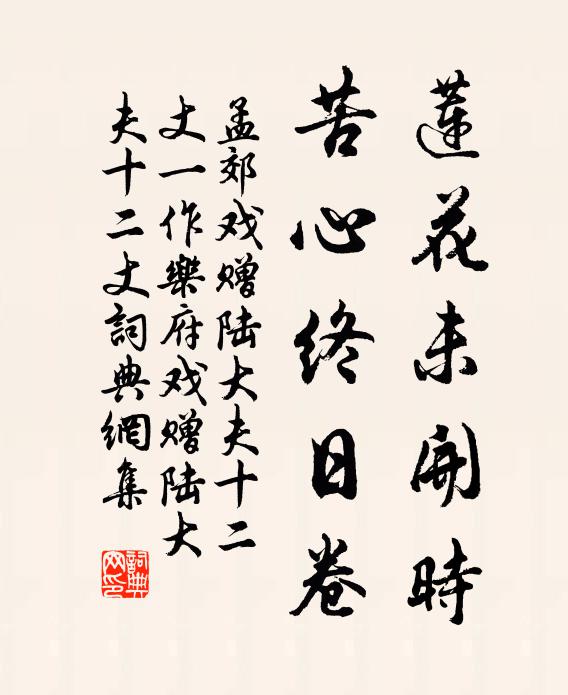 蓮花未開時
苦心終日卷
孟郊戏赠陆大夫十二
丈一作樂府戏赠陆大
夫十二丈詞典網集
詞典网印